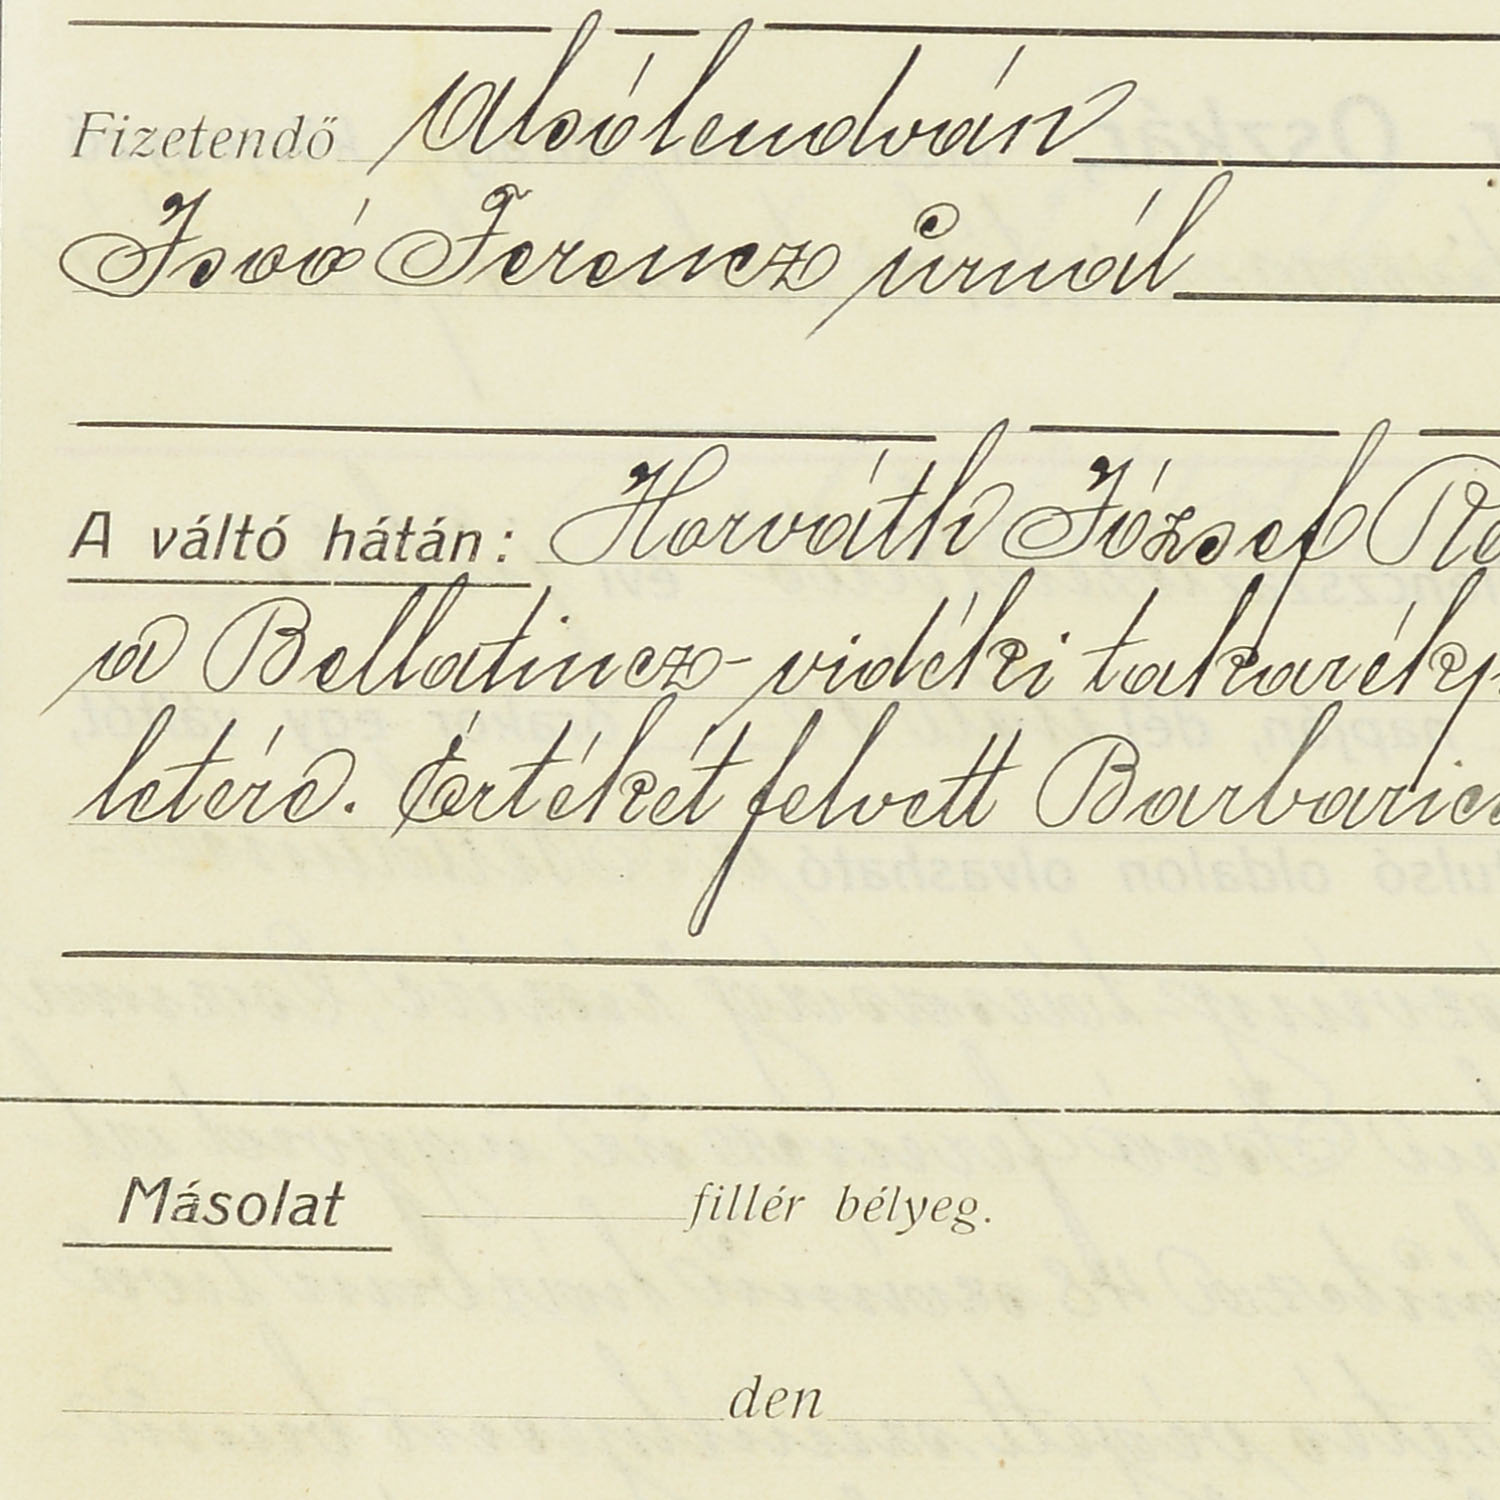 Fizetendő Alsólendván
Isoó Ferencz úrnál
A váltó hátán: Horváth József
a Bellatincz-vidéki takarékp
letére. Értékét felvett Barbarics
Másolat fillér bélyeg.
den